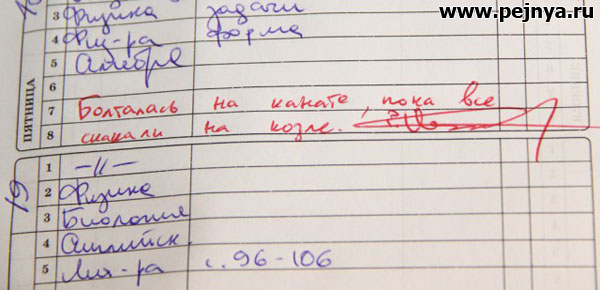 www.pejnya.ru
3 Физика задачи
4 Физ-ра форма
5 Алгебра
6
7 Болталась на канате, пока все
8 скакали на козле.
ПЯТНИЦА
19
1 -//-
2 Физика
3 Биология
4 Английск.
5 Лит-ра с. 96-106